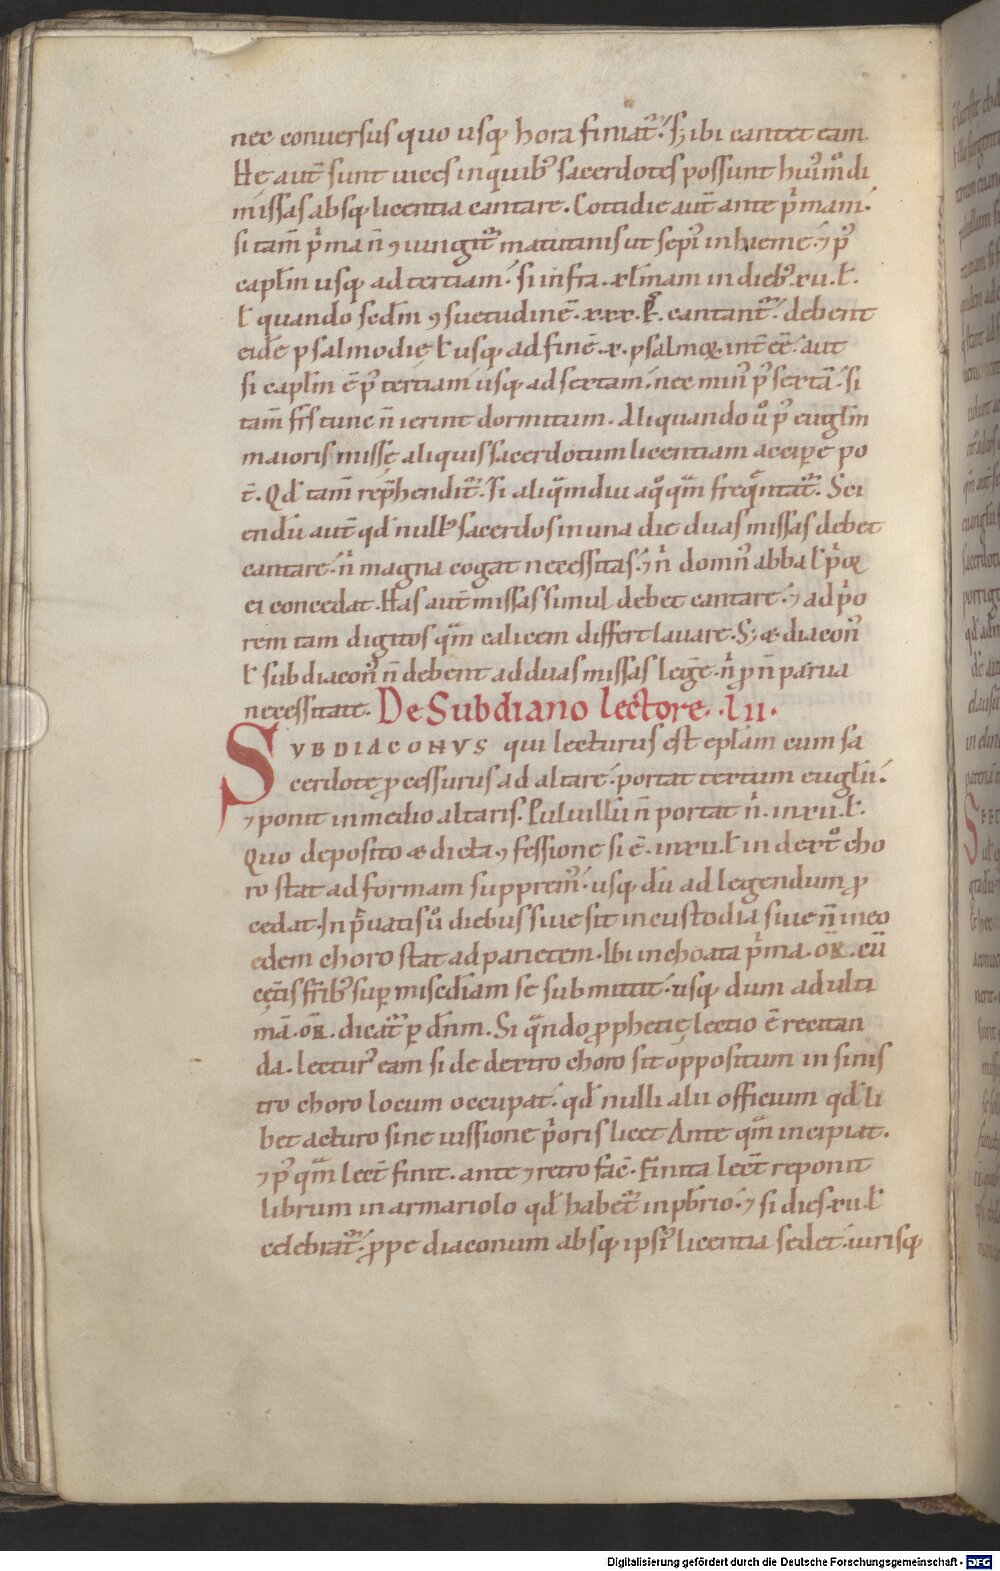 nec conuersus quo usq; hora finiat᷑. Sz ibi cantet eam
Hę aut̄ sunt uices in quib; sacerdotes possunt hui᷒modi
missas absq; licentia cantare. Cottidie aut̄ ante p̍mam.
si tam̄ p̍ma n̄ ꝯiungit᷑ matutinis ut sepi᷒ in hieme. ⁊ p᷒
capłm usq; ad tertiam. si infra .xłmam in dieb; xii. ł.
ł quando scd̄m ꝯsuetudinē .xxx. cantant᷑. debent
eidē psalmodię ł usq; ad finē .x. psalmoꝝ int̄ eē. aut
si capłm ē p᷒ tertiam usq; ad sextam. nec min᷒ p᷒ sextā. si
tam̄ fr̄s tunc n̄ ierint dormitum. Aliquando ů p᷒ euglm̄
maioris missę aliquis sacerdotum licentiam accipe po
t̄. Qd̄ tam̄ rep̄hendit᷑. Si aliq̄mdiu aq̊q̄m freq̄ntat᷑. Sci
endū aut̄ qd̄ null᷒ sacerdos in una die duas missas debet
cantare. n̍ magna cogat necessitas. ⁊ n̍ domn᷒ abba ł p̍oꝝ
ei concedat. Has aut̄ missas simul debet cantare. ⁊ ad p̍o
rem tam digitos q̄m calicem differt lauare. Sz & diacon᷒
ł subdiacon᷒ n̄ debent ad duas missas legē. n̍ ꝓ n̄ parua
necessitate. De Subdiano lectore. .lii.
SVBDIACONVS qui lecturus est epłam cum sa
cerdote ꝓcessurus ad altare. portat textum euglii.
⁊ ponit in medio altaris. Puluillū n̄ portat n̍. in xii. ł.
Quo deposito & dicta ꝯfessione si ē. in xii. ł in dext̊ cho
ro stat ad formam supprem᷒. usq; dū ad legendum ꝓ
cedat. In p̍uatis ů diebus siue sit in custodia siue n̄ in eo
edem choro stat ad parietem. Ubi inchoata p̍ma .or̄. cū
cęt̄is fr̄ib; sup misedīam se submittit. usq; dum ad ulti
mā .or̄. dicat᷑ p dn̄m. Si q̄ndo ꝓphetię lectio ē recitan
da. lectur᷒ eam si de dextro choro sit oppositum in sinis
tro choro locum occupat. qd̄ nulli alii officium qd̄ li
bet acturo sine iussione p̍oris licet Ante q̄m incipiat.
⁊ p᷒ q̄m lect̄ finit. ante ⁊ retro fac̄. Finita lect̄ reponit
librum in armariolo qd̄ habet᷑ in pb̄rio. ⁊ si dies .xii. ł
celebrat᷑. ꝓpe diaconum absq; ipsi᷒ licentia sedet. iurisq;
Digitalisierung gefördert durch die Deutsche Forschungsgemeinschaft - DFG